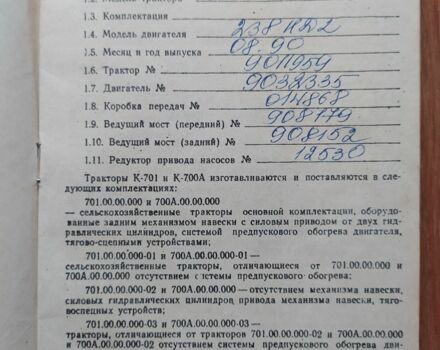 1.3. Комплектация
1.4. Модель двигателя 238 НД2
1.5. Месяц и год выпуска 08.90
1.6. Трактор № 9011959
1.7. Двигатель № 9032335
1.8. Коробка передач № 014868
1.9. Ведущий мост (передний) № 908179
1.10. Ведущий мост (задний) № 908152
1.11. Редуктор привода насосов № 12530
Тракторы К-701 и К-700А изготавливаются и поставляются в сле-
дующих комплектациях:
701.00.00.000 и 700А.00.00.000
— сельскохозяйственные тракторы основной комплектации, оборудо-
ванные задним механизмом навески с силовым приводом от двух гид-
равлических цилиндров, системой предпускового обогрева двигателя,
тягово-сцепными устройствами;
701.00.00.000-01 и 700А.00.00.000-01 —
сельскохозяйственные тракторы, отличающиеся от 701.00.00.000 и
700А.00.00.000 отсутствием системы предпускового обогрева;
701.00.00.000-02 и 700А.00.00.000-02 — отсутствием механизма навески,
силовых гидравлических цилиндров, привода механизма навески, тяго-
воспецных устройств;
701.00.00.000-03 и 700А.00.00.000-03 —
тракторы, отличающиеся от тракторов 701.00.00.000-02 и 700А.00.00.000
и 700А.00.00.000-02 отсутствием системы предпускового обогрева дви-